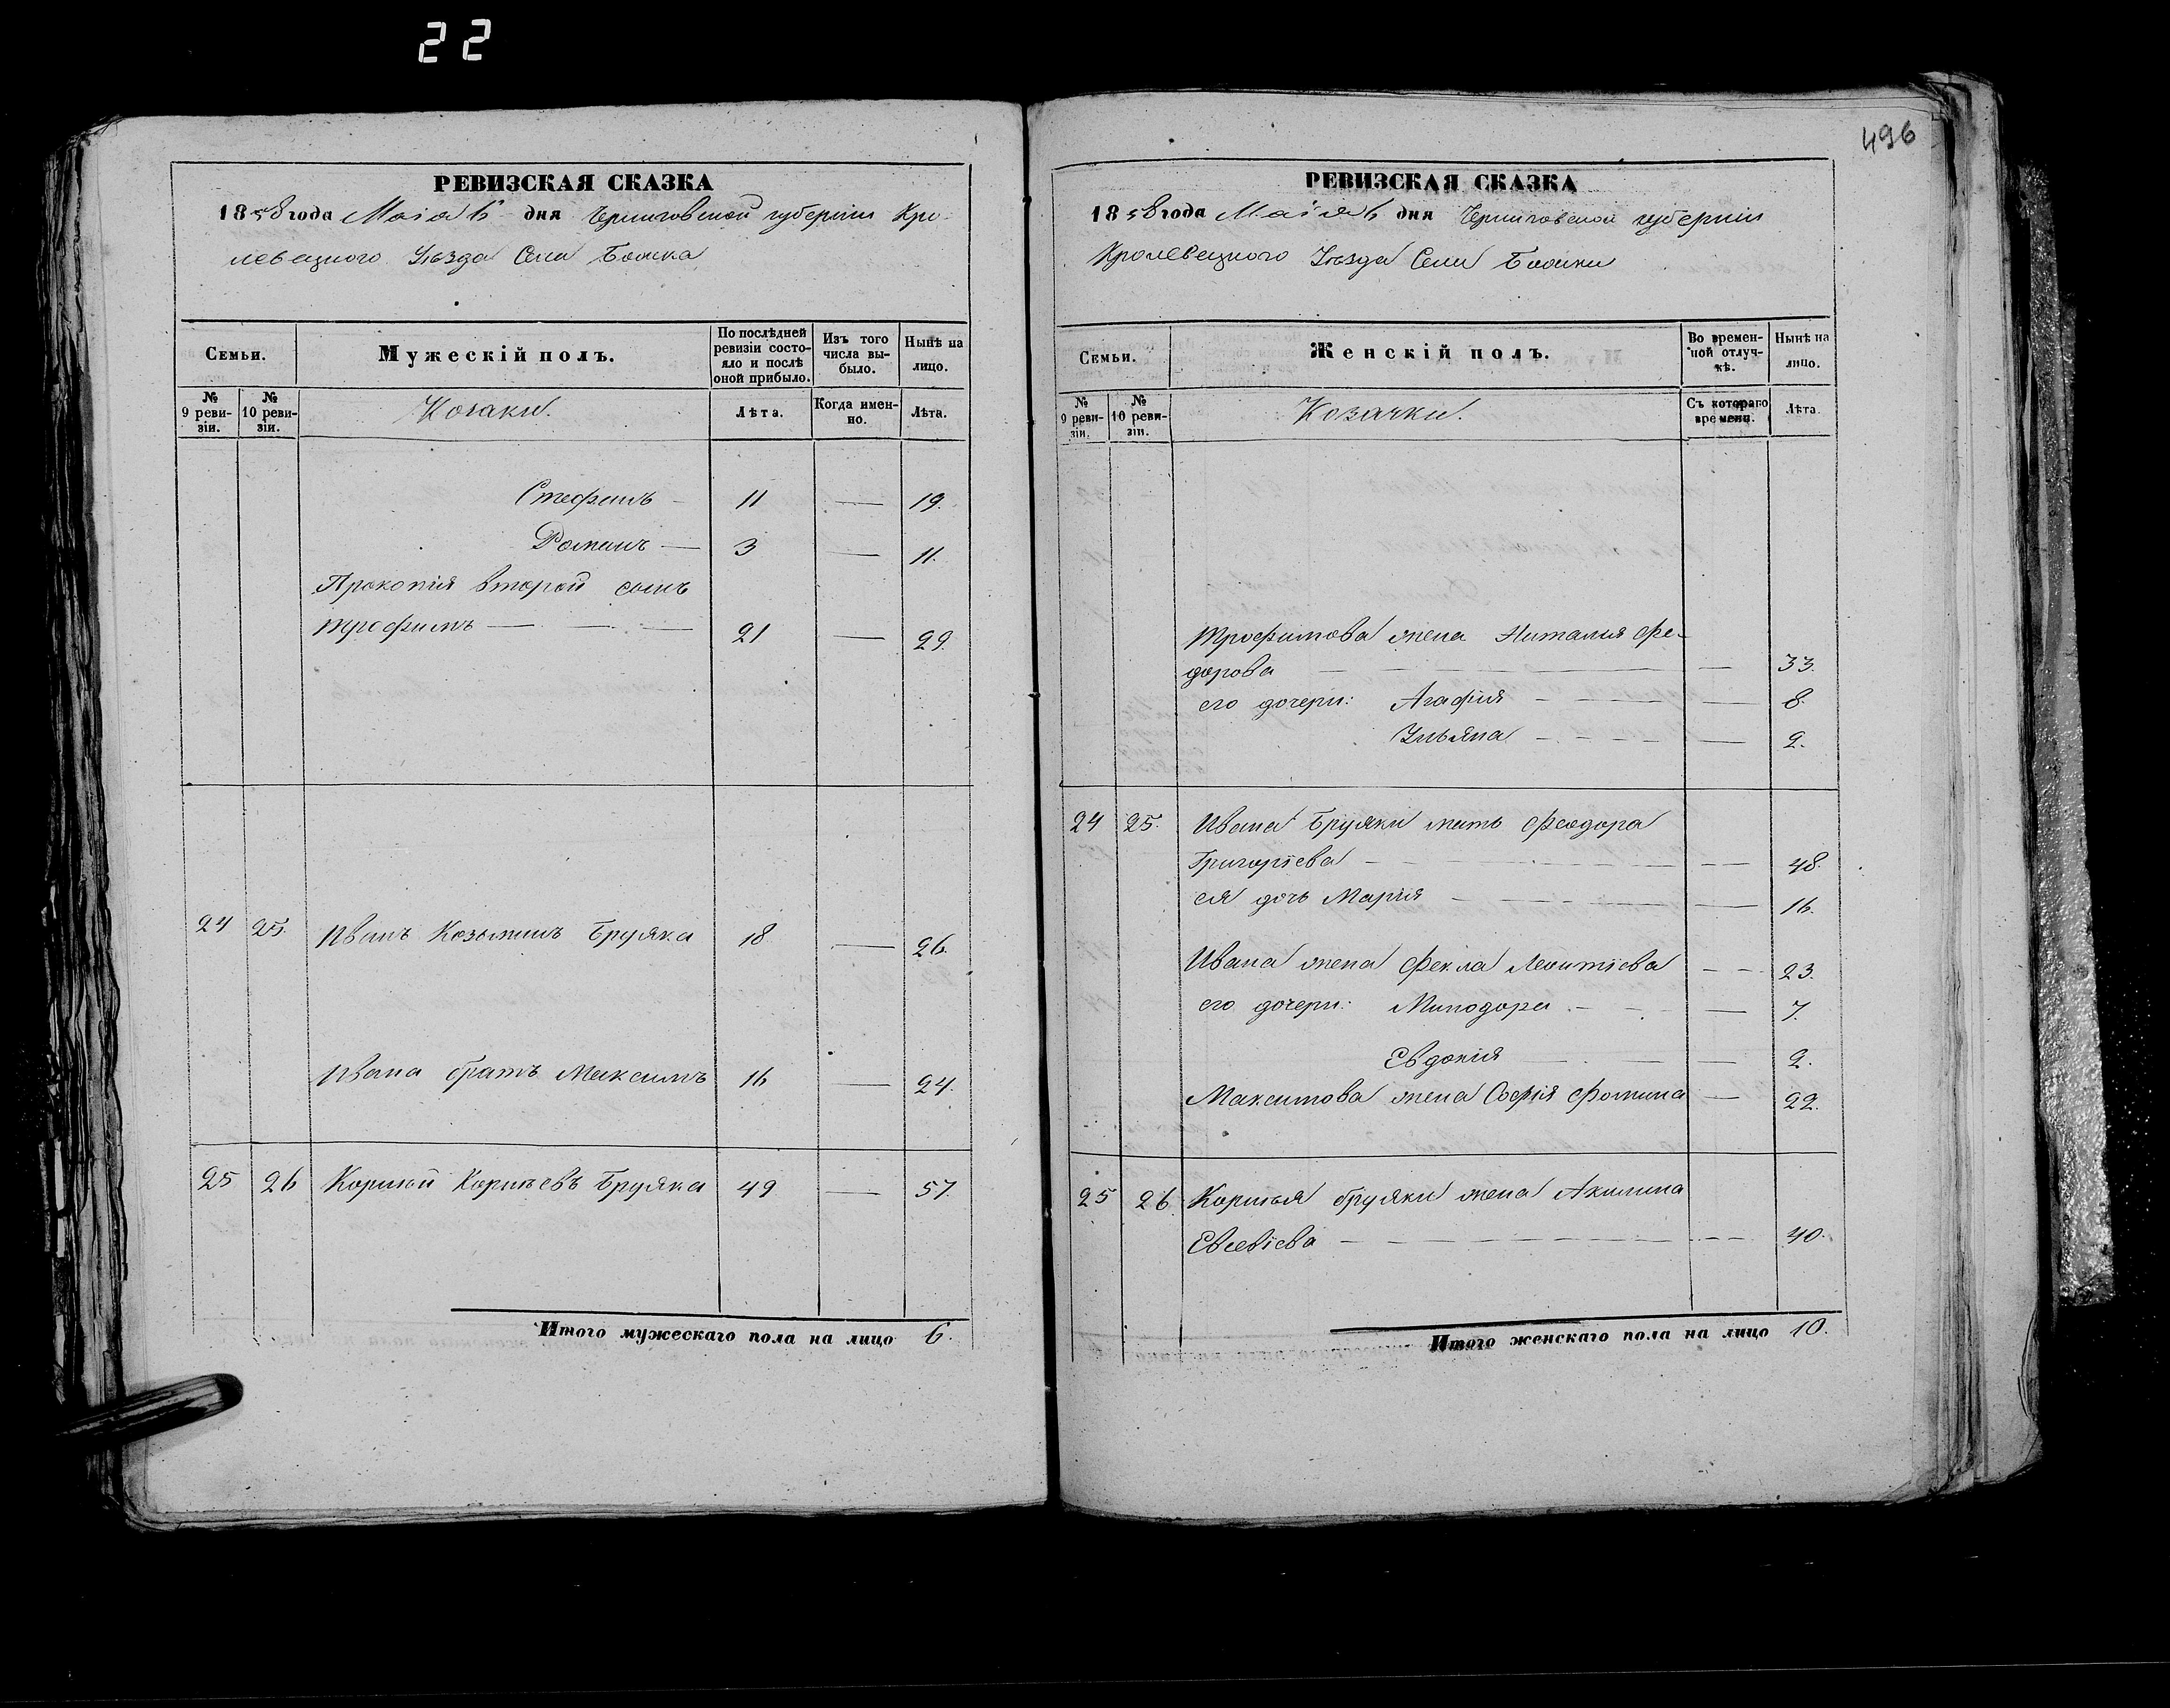 22
496
РЕВИЗСКАЯ СКАЗКА
1858 года Маія 6 дня Черниговской губерніи Кро-
левецкого Уѣзда Села
Семьи.
Мужескій полъ.
По послѣдней ревизіи состояло и послѣ оной прибыло.
Изъ того числа выбыло.
Нынѣ на лицо.
№ 9 ревизіи.
№ 10 ревизіи.
Козаки.
Лѣта.
Когда именно.
Лѣта.
Стефанъ — 11 — 19.
Романъ — 3 — 11.
Прокопія второй сынъ
Трофимъ — — — 21 — 29.
24 25. Иванъ Козьминъ Бруяка 18 — 26.
Ивана братъ Максимъ 16 — 24.
25 26 Корнѣй Корнѣевъ Бруяка 49 — 57.
Итого мужескаго пола на лицо 6.
РЕВИЗСКАЯ СКАЗКА
1858 года Маія 6 дня Черниговской губерніи
Кролевецкого Уѣзда Села
Семьи.
Женскій полъ.
Во временной отлучкѣ.
Нынѣ на лицо.
№ 9 ревизіи.
№ 10 ревизіи.
Козачки.
Съ котораго времени.
Лѣта.
Трофимова жена Наталія Фе-
дорова — — — 33.
его дочери: Агафія — — — 8.
Ульяна — — — 2.
24 25. Ивана Бруяки мать Феодора
Григоріева — — — 48.
ея дочь Марія — — — 16.
Ивана жена Фекла Леонтіева — — 23.
его дочери: Минодора — — — 7.
Евдокія — — — 2.
Максимова жена Софія Фомина — 22.
25 26. Корнѣя Бруяки жена Акилина
Евсевіева — — — 40.
Итого женскаго пола на лицо 10.